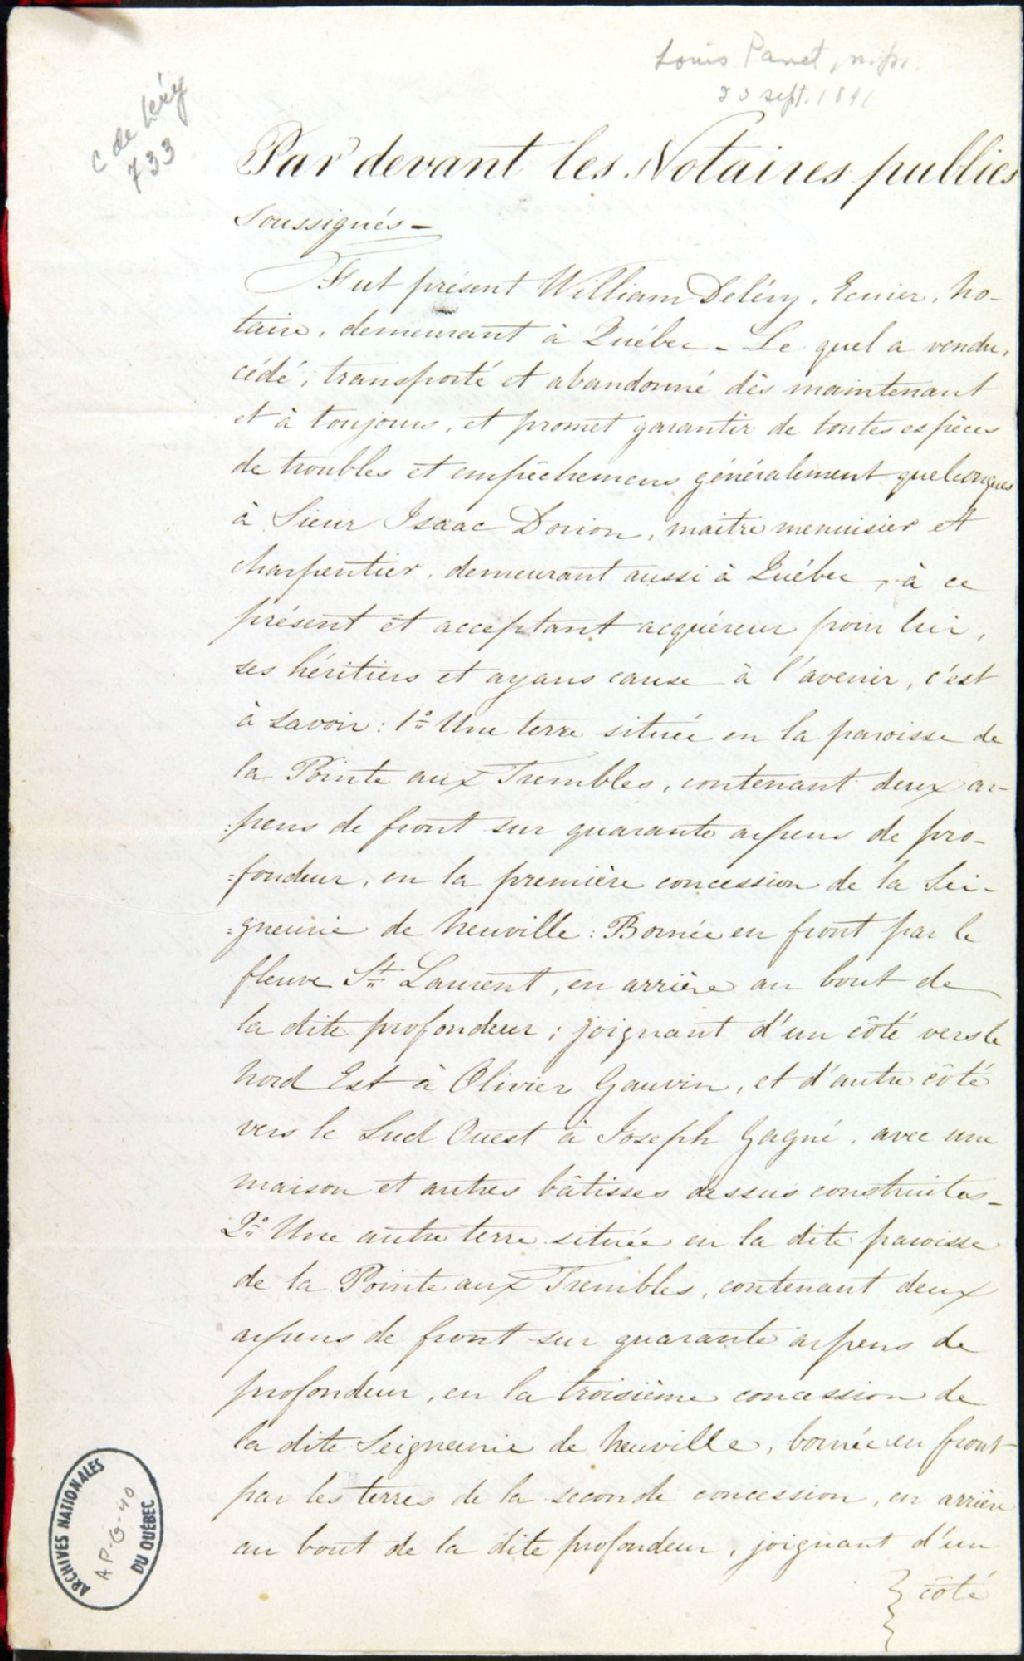 Louis Panet, n.p.
23 sept. 18
C de Léry
733
Par devant les Notaires publics
Soussignés –
Fut présent William Deléry, Ecuier, No-
taire, demeurant à Québec – Le quel a vendu,
cédé, transporté et abandonné dès maintenant
et à toujours, et promet garantir de toutes espèces
de troubles et empêchemens généralement quelconques
à Sieur Isaac Dorion, maitre menuisier et
charpentier, demeurant aussi à Québec, à ce
présent et acceptant acquéreur pour lui,
ses héritiers et ayans cause à l'avenir, c'est
à savoir : 1º Une terre située en la paroisse de
la Pointe aux Trembles, contenant deux ar-
:pens de front sur quarante arpens de pro-
=fondeur, en la première concession de la Sei-
=gneurie de Neuville : Bornée en front par le
fleuve St Laurent, en arrière au bout de
la dite profondeur ; joignant d'un côté vers le
Nord Est à Olivier Gauvin, et d'autre côté
vers le Sud Ouest à Joseph Gagné, avec une
maison et autres bâtisses dessus construites –
2º Une autre terre située en la dite paroisse
de la Pointe aux Trembles, contenant deux
arpens de front sur quarante arpens de
profondeur, en la troisième concession de
la dite Seigneurie de Neuville, bornée en front
par les terres de la seconde concession, en arrière
au bout de la dite profondeur, joignant d'un
côté
ARCHIVES NATIONALES
AP-G-40
DU QUÉBEC